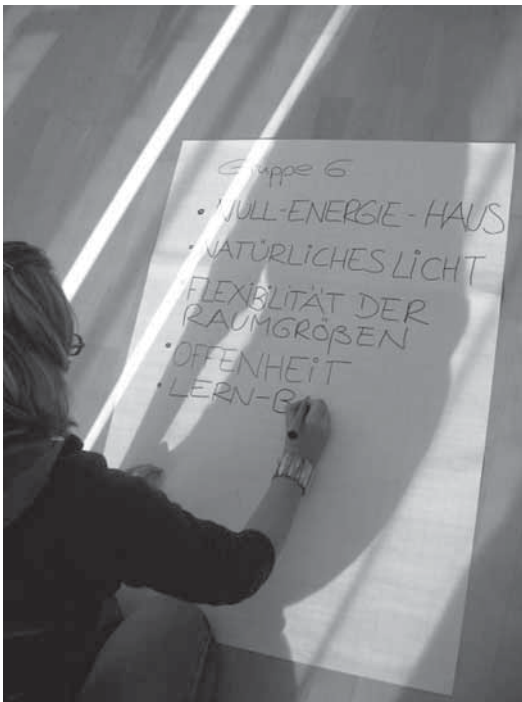 Gruppe 6
• NULL-ENERGIE-HAUS
• NATÜRLICHES LICHT
• FLEXIBILITÄT DER
RAUMGRÖßEN
• OFFENHEIT
• LERN-B